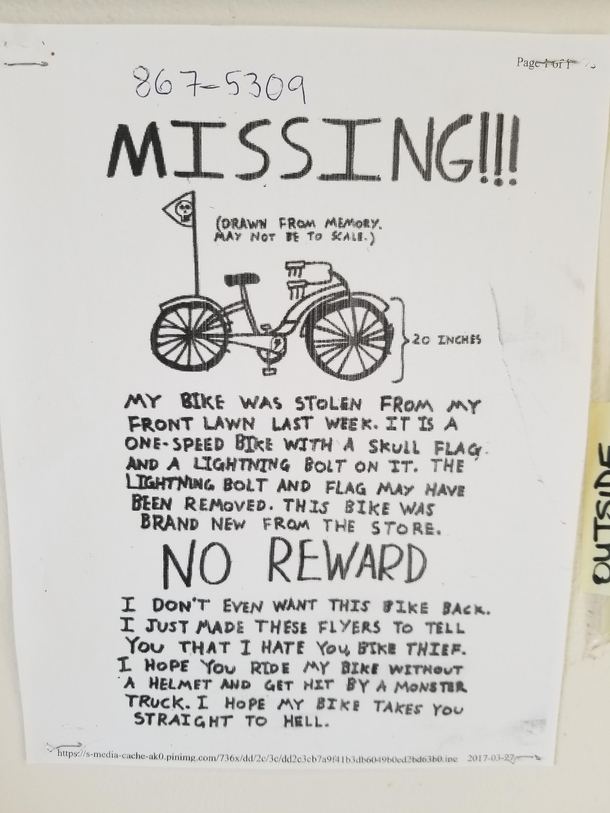 Page 1 of 1
867-5309
MISSING!!!
(DRAWN FROM MEMORY.
MAY NOT BE TO SCALE.)
20 INCHES
MY BIKE WAS STOLEN FROM MY
FRONT LAWN LAST WEEK. IT IS A
ONE-SPEED BIKE WITH A SKULL FLAG
AND A LIGHTNING BOLT ON IT. THE
LIGHTNING BOLT AND FLAG MAY HAVE
BEEN REMOVED. THIS BIKE WAS
BRAND NEW FROM THE STORE.
NO REWARD
I DON'T EVEN WANT THIS BIKE BACK.
I JUST MADE THESE FLYERS TO TELL
YOU THAT I HATE YOU, BIKE THIEF.
I HOPE YOU RIDE MY BIKE WITHOUT
A HELMET AND GET HIT BY A MONSTER
TRUCK. I HOPE MY BIKE TAKES YOU
STRAIGHT TO HELL.
OUTSIDE